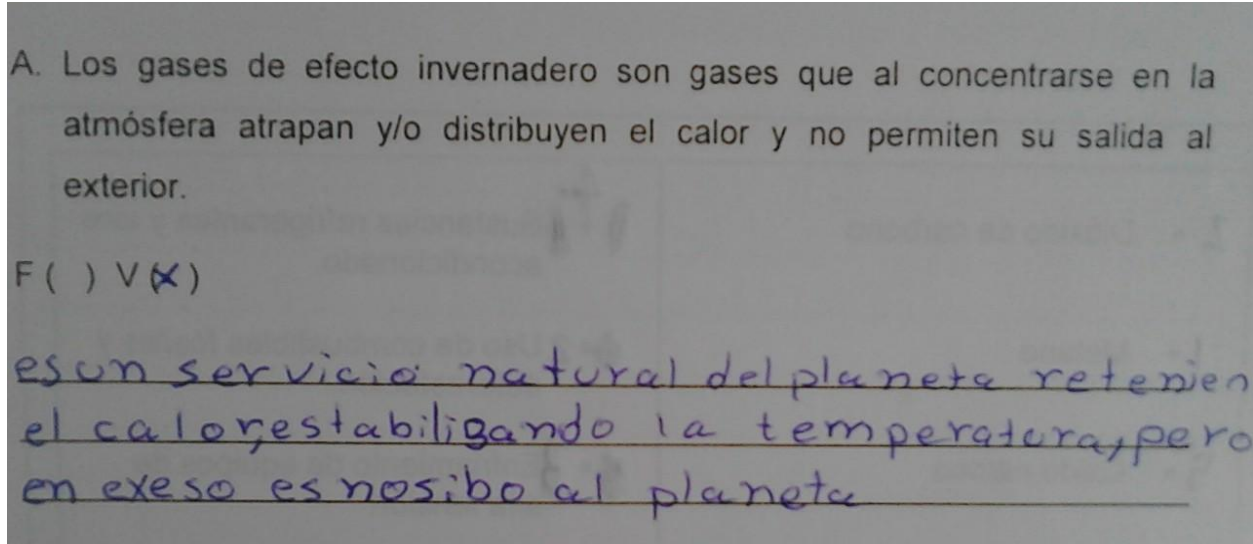 A. Los gases de efecto invernadero son gases que al concentrarse en la
atmósfera atrapan y/o distribuyen el calor y no permiten su salida al
exterior.
F ( ) V (x)
es un servicio natural del planeta retenien
el calor, estabiligando la temperatura, pero
en exeso es nosibo al planeta